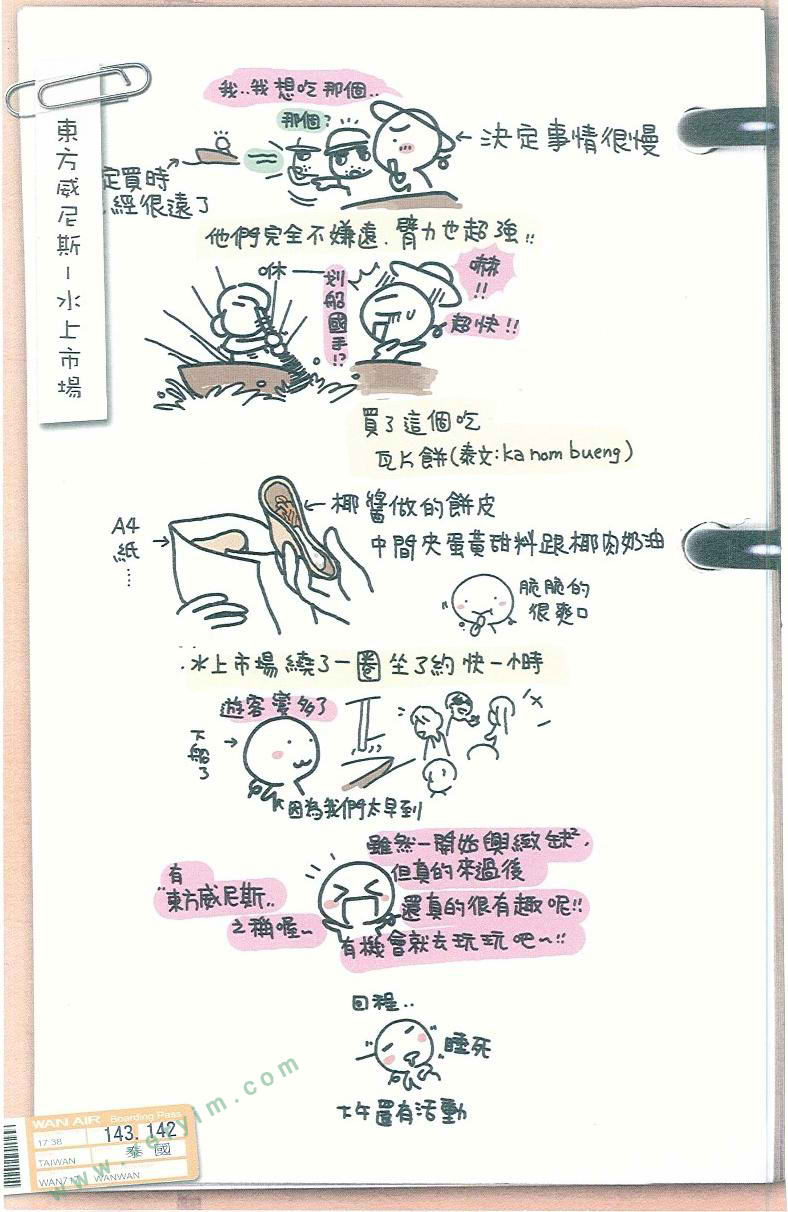 東方威尼斯-水上市場
我..我想吃那個..
那個?
決定事情很慢
定買時
經很遠了
他們完全不嫌遠.臂力也超強!!
咻
划船國手!?
嚇!!
超快!!
買了這個吃
瓦片餅(泰文:ka nom bueng)
椰醬做的餅皮
中間夾蛋黃甜料跟椰肉奶油
A4
紙
....
脆脆的
很爽口
水上市場繞了一圈坐了約快一小時
遊客變多了
下船了
因為我們太早到
雖然一開始興緻缺²,
但真的來過後
還真的很有趣呢!!
有機會就去玩玩吧~!!
有
"東方威尼斯..
之稱喔~
回程..
睡死
下午還有活動
WAN AIR Boarding Pass
17:38
143.142
TAIWAN
泰國
WANWAN